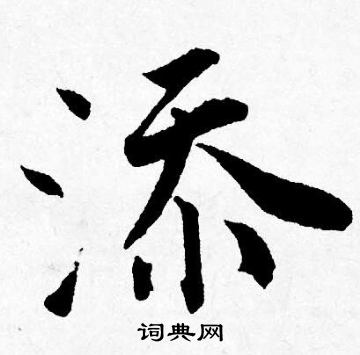 添
词典网